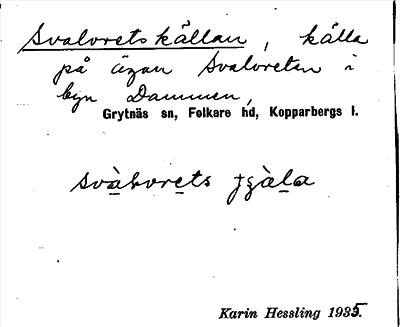 Svalvretskällan, källa
på ägan Svalvreten i
byn Dammen,
Grytnäs sn, Folkare hd, Kopparbergs l.
svàlvrets
Karin Hessling 1935.